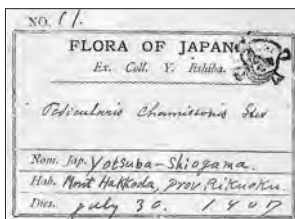 NO. 61.
FLORA OF JAPAN
Ex. Coll. Y. Iishiba.
Pedicularis Chamissonis Stev
Nom. Jap. Yotsuba-Shiogama.
Hab. Mont Hakkoda, prov Rikuoku
Dies. July 30. 1907